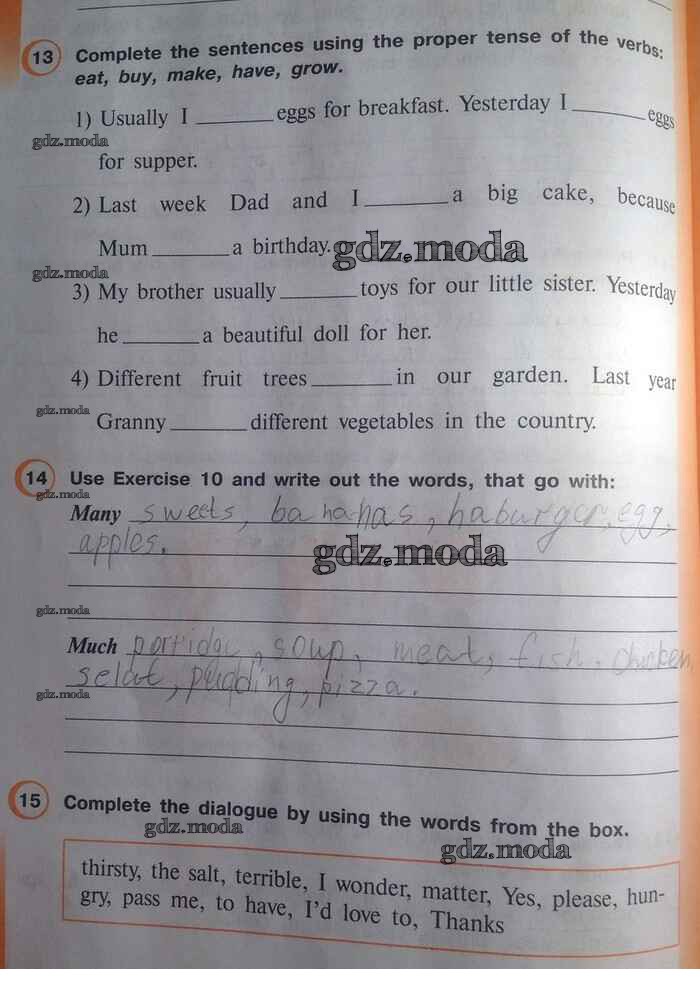 13 Complete the sentences using the proper tense of the verbs:
eat, buy, make, have, grow.
1) Usually I ________ eggs for breakfast. Yesterday I ________ eggs
gdz.moda
for supper.
2) Last week Dad and I ________ a big cake, because
Mum ________ a birthday.
gdz.moda
gdz.moda
3) My brother usually ________ toys for our little sister. Yesterday
he ________ a beautiful doll for her.
4) Different fruit trees ________ in our garden. Last year
gdz.moda
Granny ________ different vegetables in the country.
14 Use Exercise 10 and write out the words, that go with:
gdz.moda
Many sweets, bananas, haburger, egg,
apples.
gdz.moda
gdz.moda
Much porridge, soup, meat, fish, chicken,
selat, pudding, pizza.
gdz.moda
15 Complete the dialogue by using the words from the box.
gdz.moda
gdz.moda
thirsty, the salt, terrible, I wonder, matter, Yes, please, hun-
gry, pass me, to have, I'd love to, Thanks